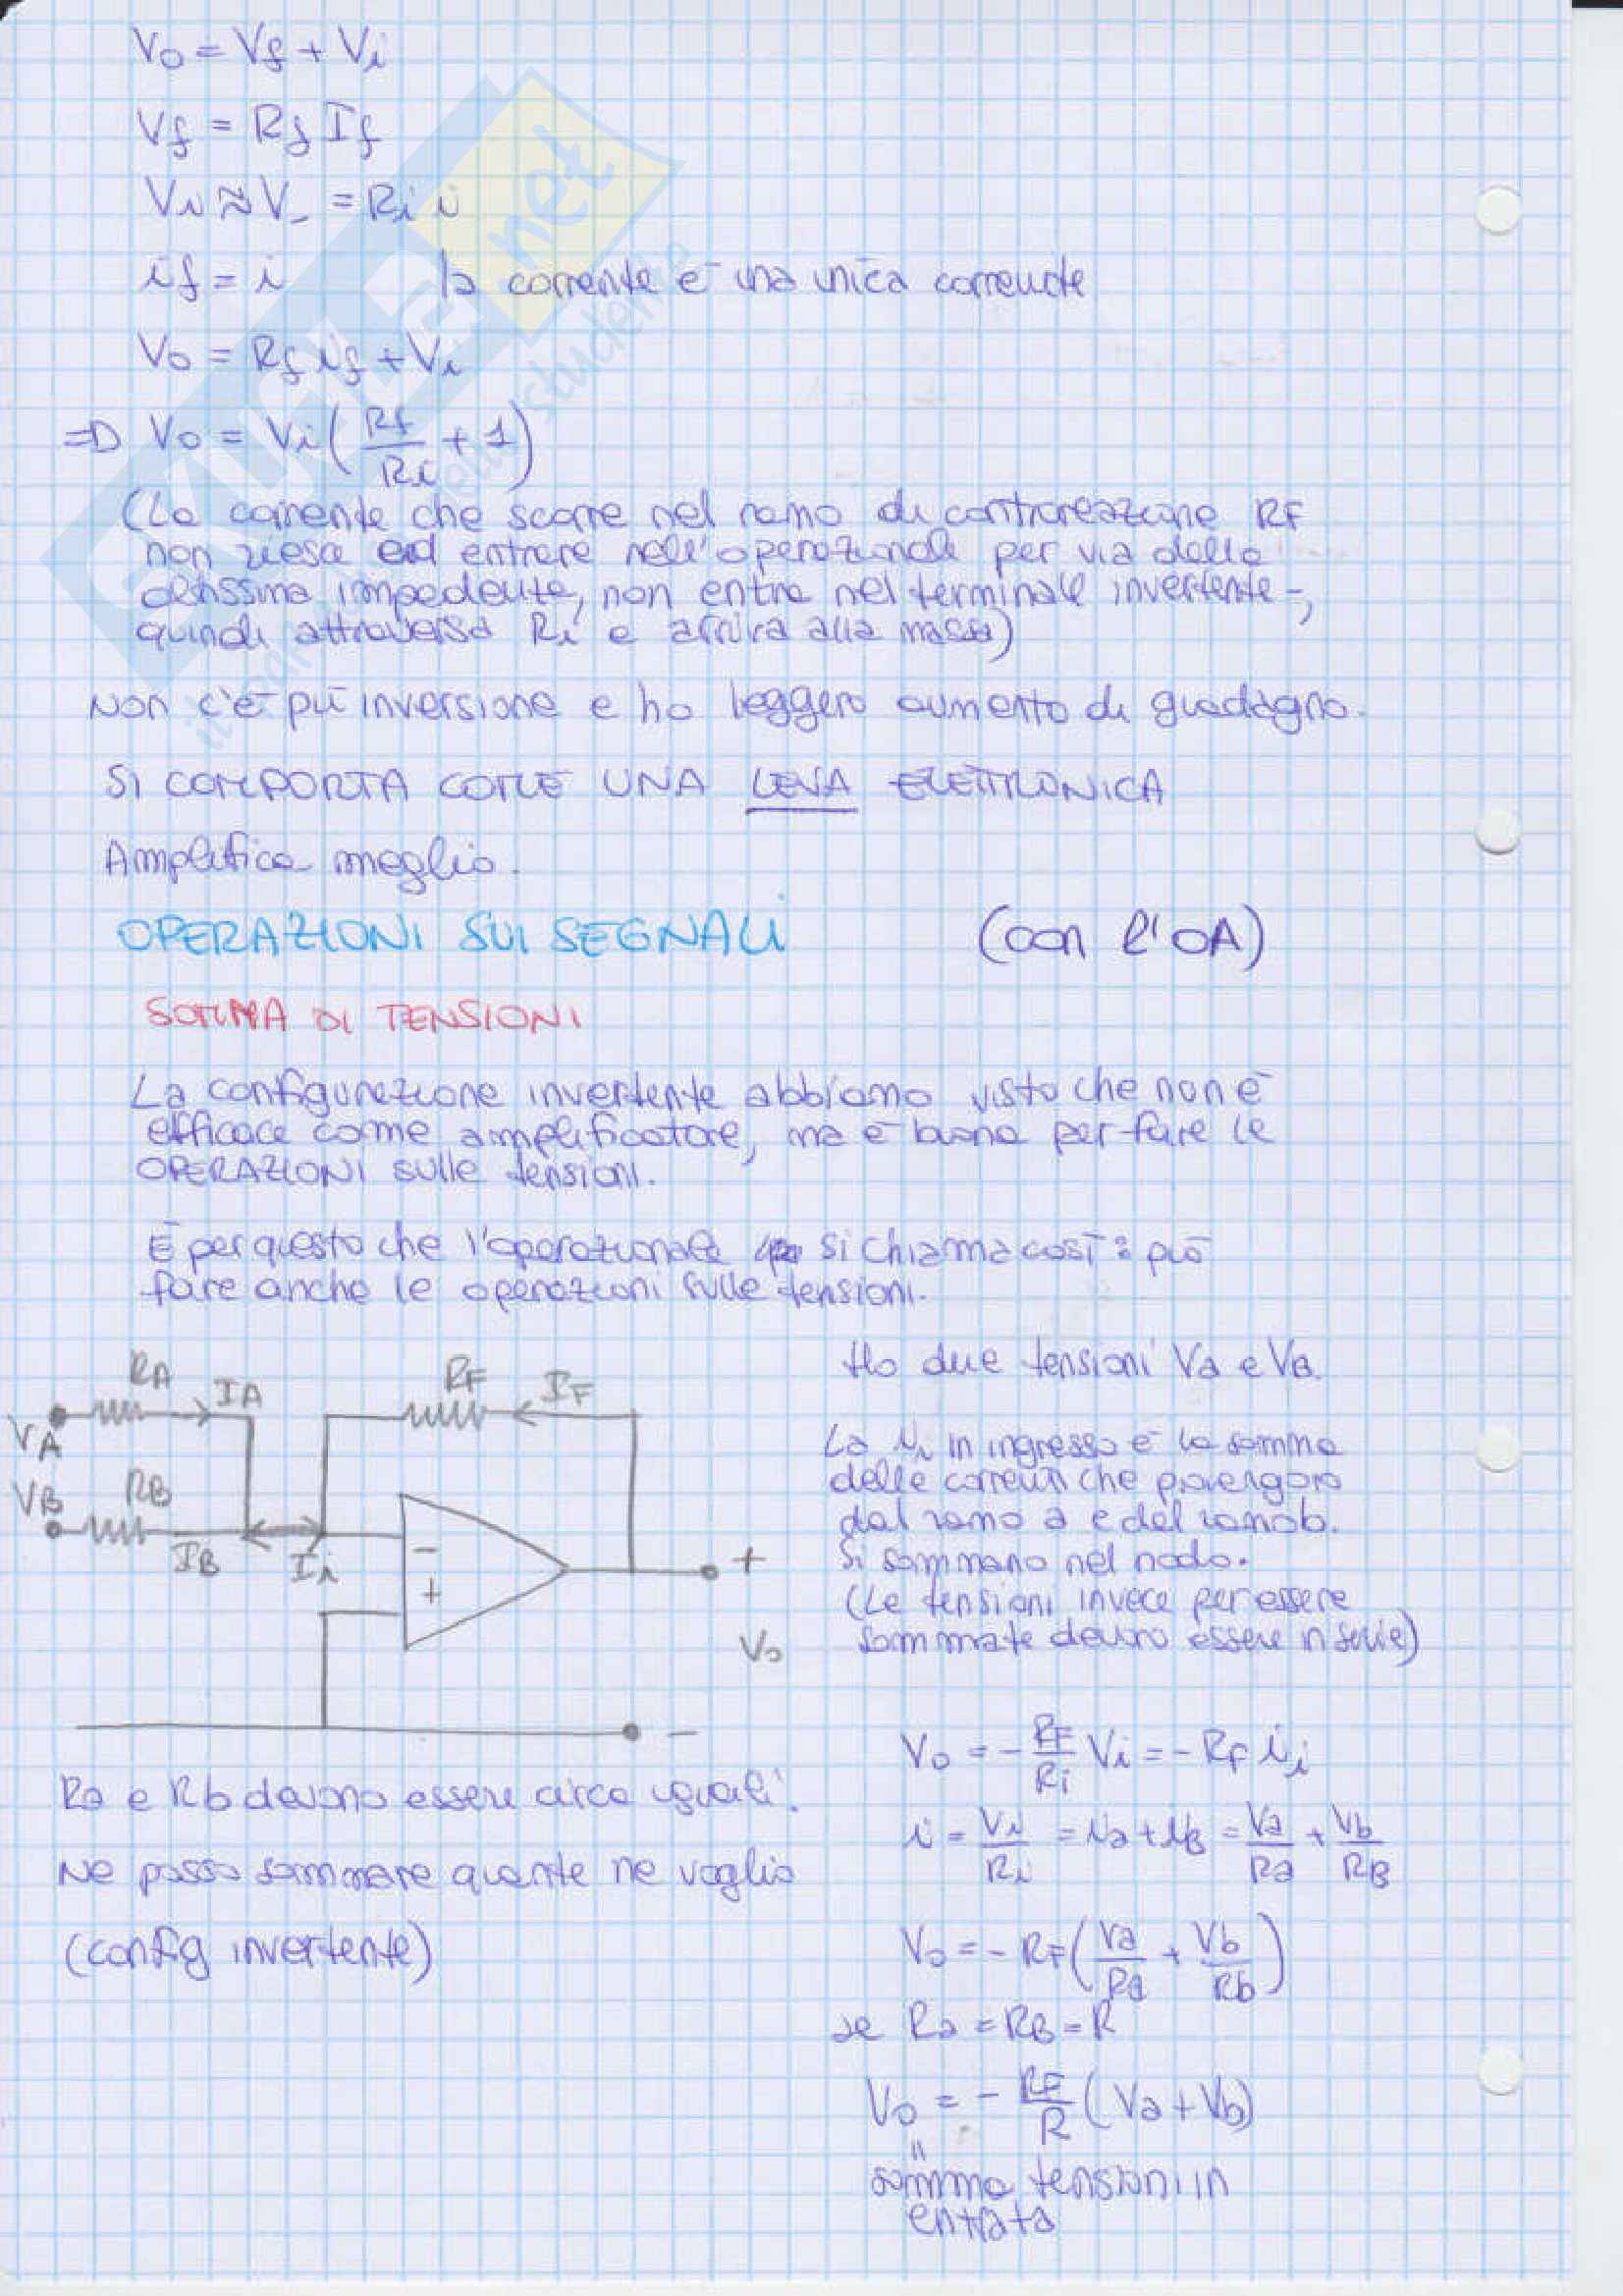 Vo = Vf + Vi
Vf = Rf If
Vi ≈ V- = Ri i
if = i la corrente è una unica corrente
Vo = Rf if + Vi
=D Vo = Vi ( Rf / Ri + 1 )
(La corrente che scorre nel ramo di controreazione RF
non riesce ad entrare nell'operazionale per via della
altissima impedente, non entra nel terminale invertente -,
quindi attraversa Ri e arriva alla massa)
Non c'è più inversione e ho leggero aumento di guadagno.
SI COMPORTA COME UNA LEVA ELETTRONICA
Amplifica meglio.
OPERAZIONI SUI SEGNALI (con l'OA)
SOMMA DI TENSIONI
La configurazione invertente abbiamo visto che non è
efficace come amplificatore, ma è buona per fare le
OPERAZIONI sulle tensioni.
È per questo che l'operazionale si chiama così: può
fare anche le operazioni sulle tensioni.
Ho due tensioni Va e VB.
RA IA RF IF
VA
VB RB
IB Ii - + + Vo -
La ii in ingresso è la somma
delle correnti che provengono
dal ramo a e dal ramo b.
Si sommano nel nodo.
(Le tensioni invece per essere
sommate devono essere in serie)
Vo = - RF / Ri Vi = - RF ii
i = Vi / Ri = ia + iB = Va / Ra + Vb / RB
Vo = - RF ( Va / Ra + Vb / Rb )
se Ra = RB = R
Vo = - RF / R ( Va + Vb )
=
somma tensioni in
entrata
Ra e Rb devono essere circa uguali.
Ne posso sommare quante ne voglio
(config invertente)
net